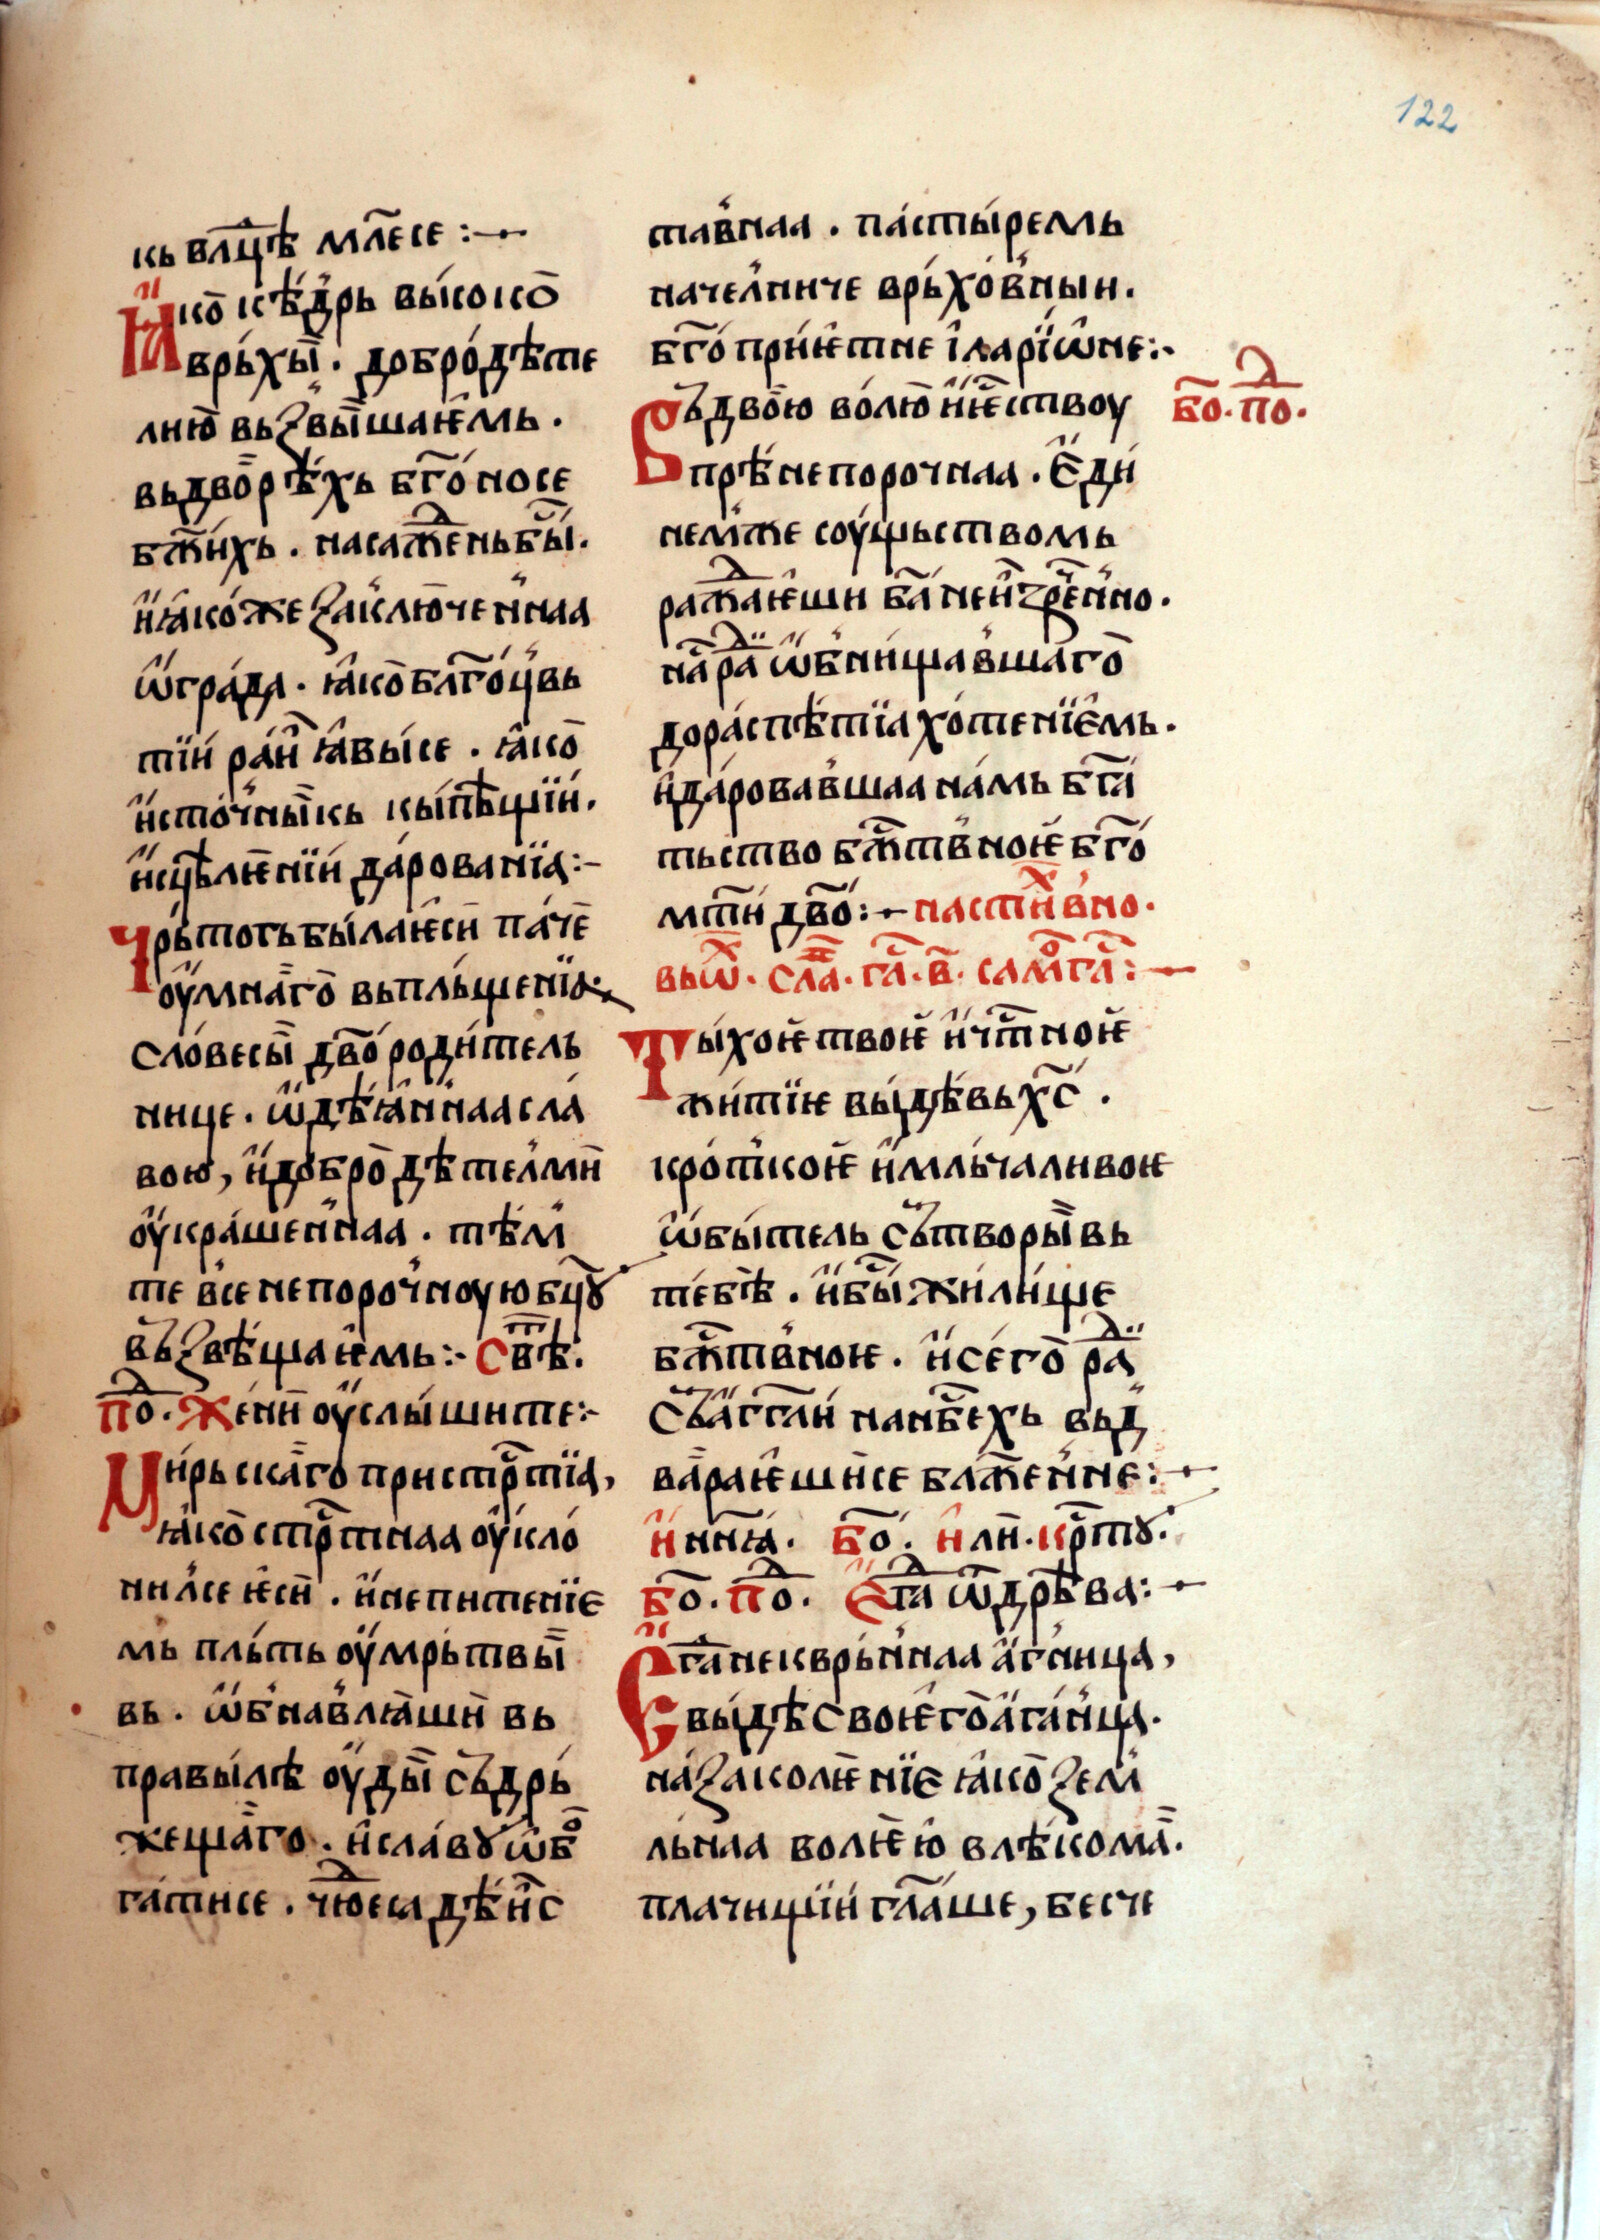 122
кь влⷣцѣ млⷭ҇есе :—
Ꙗ҆ко кѣ́дрь вы́соко
врь́хы. добро́дѣте
лию вьꙁвы́шаѥмь.
вьдворѣ́хь бг҃о́носе
бж҃їихь. насажⷣень бы́.
и҆ꙗко́же ꙁаключеннаа
ѡ҆гра́да. ꙗ҆ко бл҃го́цвь
тїи ра́и ꙗ҆вы́се. ꙗ҆ко
и҆сто́чныкь кы́пѣщїи.
и҆сцѣлѥнїи да́рованїа:–
Чрь́тогь была ѥ҆си па́че
оу҆мна́го вьпль́щенїа
сло́весы дв҃о роди́тель
нице. ѡ҆дѣ́ꙗннаа сла́
вою, и҆добродѣтелми
оу҆кра́шеннаа. тѣ́м
те все непорочноую бц҃ꙋ
вьꙁвѣ́щаѥмь:– Свѣⷮ.
поⷣ. Жени оу҆слы́шите:–
Ми́рьска́го пристрⷭ҇тїа,
ꙗ҆ко стрⷭ҇тнаа оу҆кло́
нилсе ѥ҆си. и҆непитенїе
мь пль́ть оу҆мрь́твы
вь. ѡ҆бнавлꙗшии вь
пра́вылѣ оу҆ды сьдрь́
жеща́го. и҆сла́вꙋ ѡ҆бо
га́тисе. чюⷣеса дѣ́ис
ста́внаа. па́стыремь
начелниче врь́хо́вныи.
бг҃о́прїѥтне і҆ларїѡне:–
Сьдво́ю во́лю и҆ѥⷭ҇ствоу
прѣ́непорочнаа. Е҆ди́
немже соу́щьствомь
ражⷣаѥши ба҃ неи҆ꙁрⷱ҇енно.
на́ раⷣ ѡ҆бни́щавшаго
дора́спѣтїа хо́тенїемь.
и҆да́ровавшаа на́мь бг҃а́
тьство бжⷭ҇твноѥ бг҃о́
мт҃и дв҃о:— настиⷯвно.
вьѡⷯ. слⷡ҇а. гла. в҃. самогла:—
Ты́хоѥ твоѥ и҆чⷭ҇тноѥ
жи́тїѥ вы́дѣвь хс҃.
кро́ткоѥ и҆мльчаливоѥ
ѡ҆бы́тель сьтворы вь
те́бѣ. и҆бы жи́ли́ще
бжⷭ҇твноѥ. и҆се́го раⷣ
сьа҆гг҃ли нанб҃ехь вьд
ва́раѥшисе блажⷩ҇не:—
и҆ ннꙗ. бо. и҆ли. крⷭ҇тꙋ.
бо. поⷣ. Е҆гⷣа ѿдрѣва:—
Е҆гⷣа нескврьннаа а҆гница,
вы́дѣ своѥго а҆га́нца.
на́ꙁаколѥнїе ꙗ҆ко ꙁем
льнаа волѥю влѣ́кома.
плачищїи гл҃аше, бесче
бо. поⷣ.